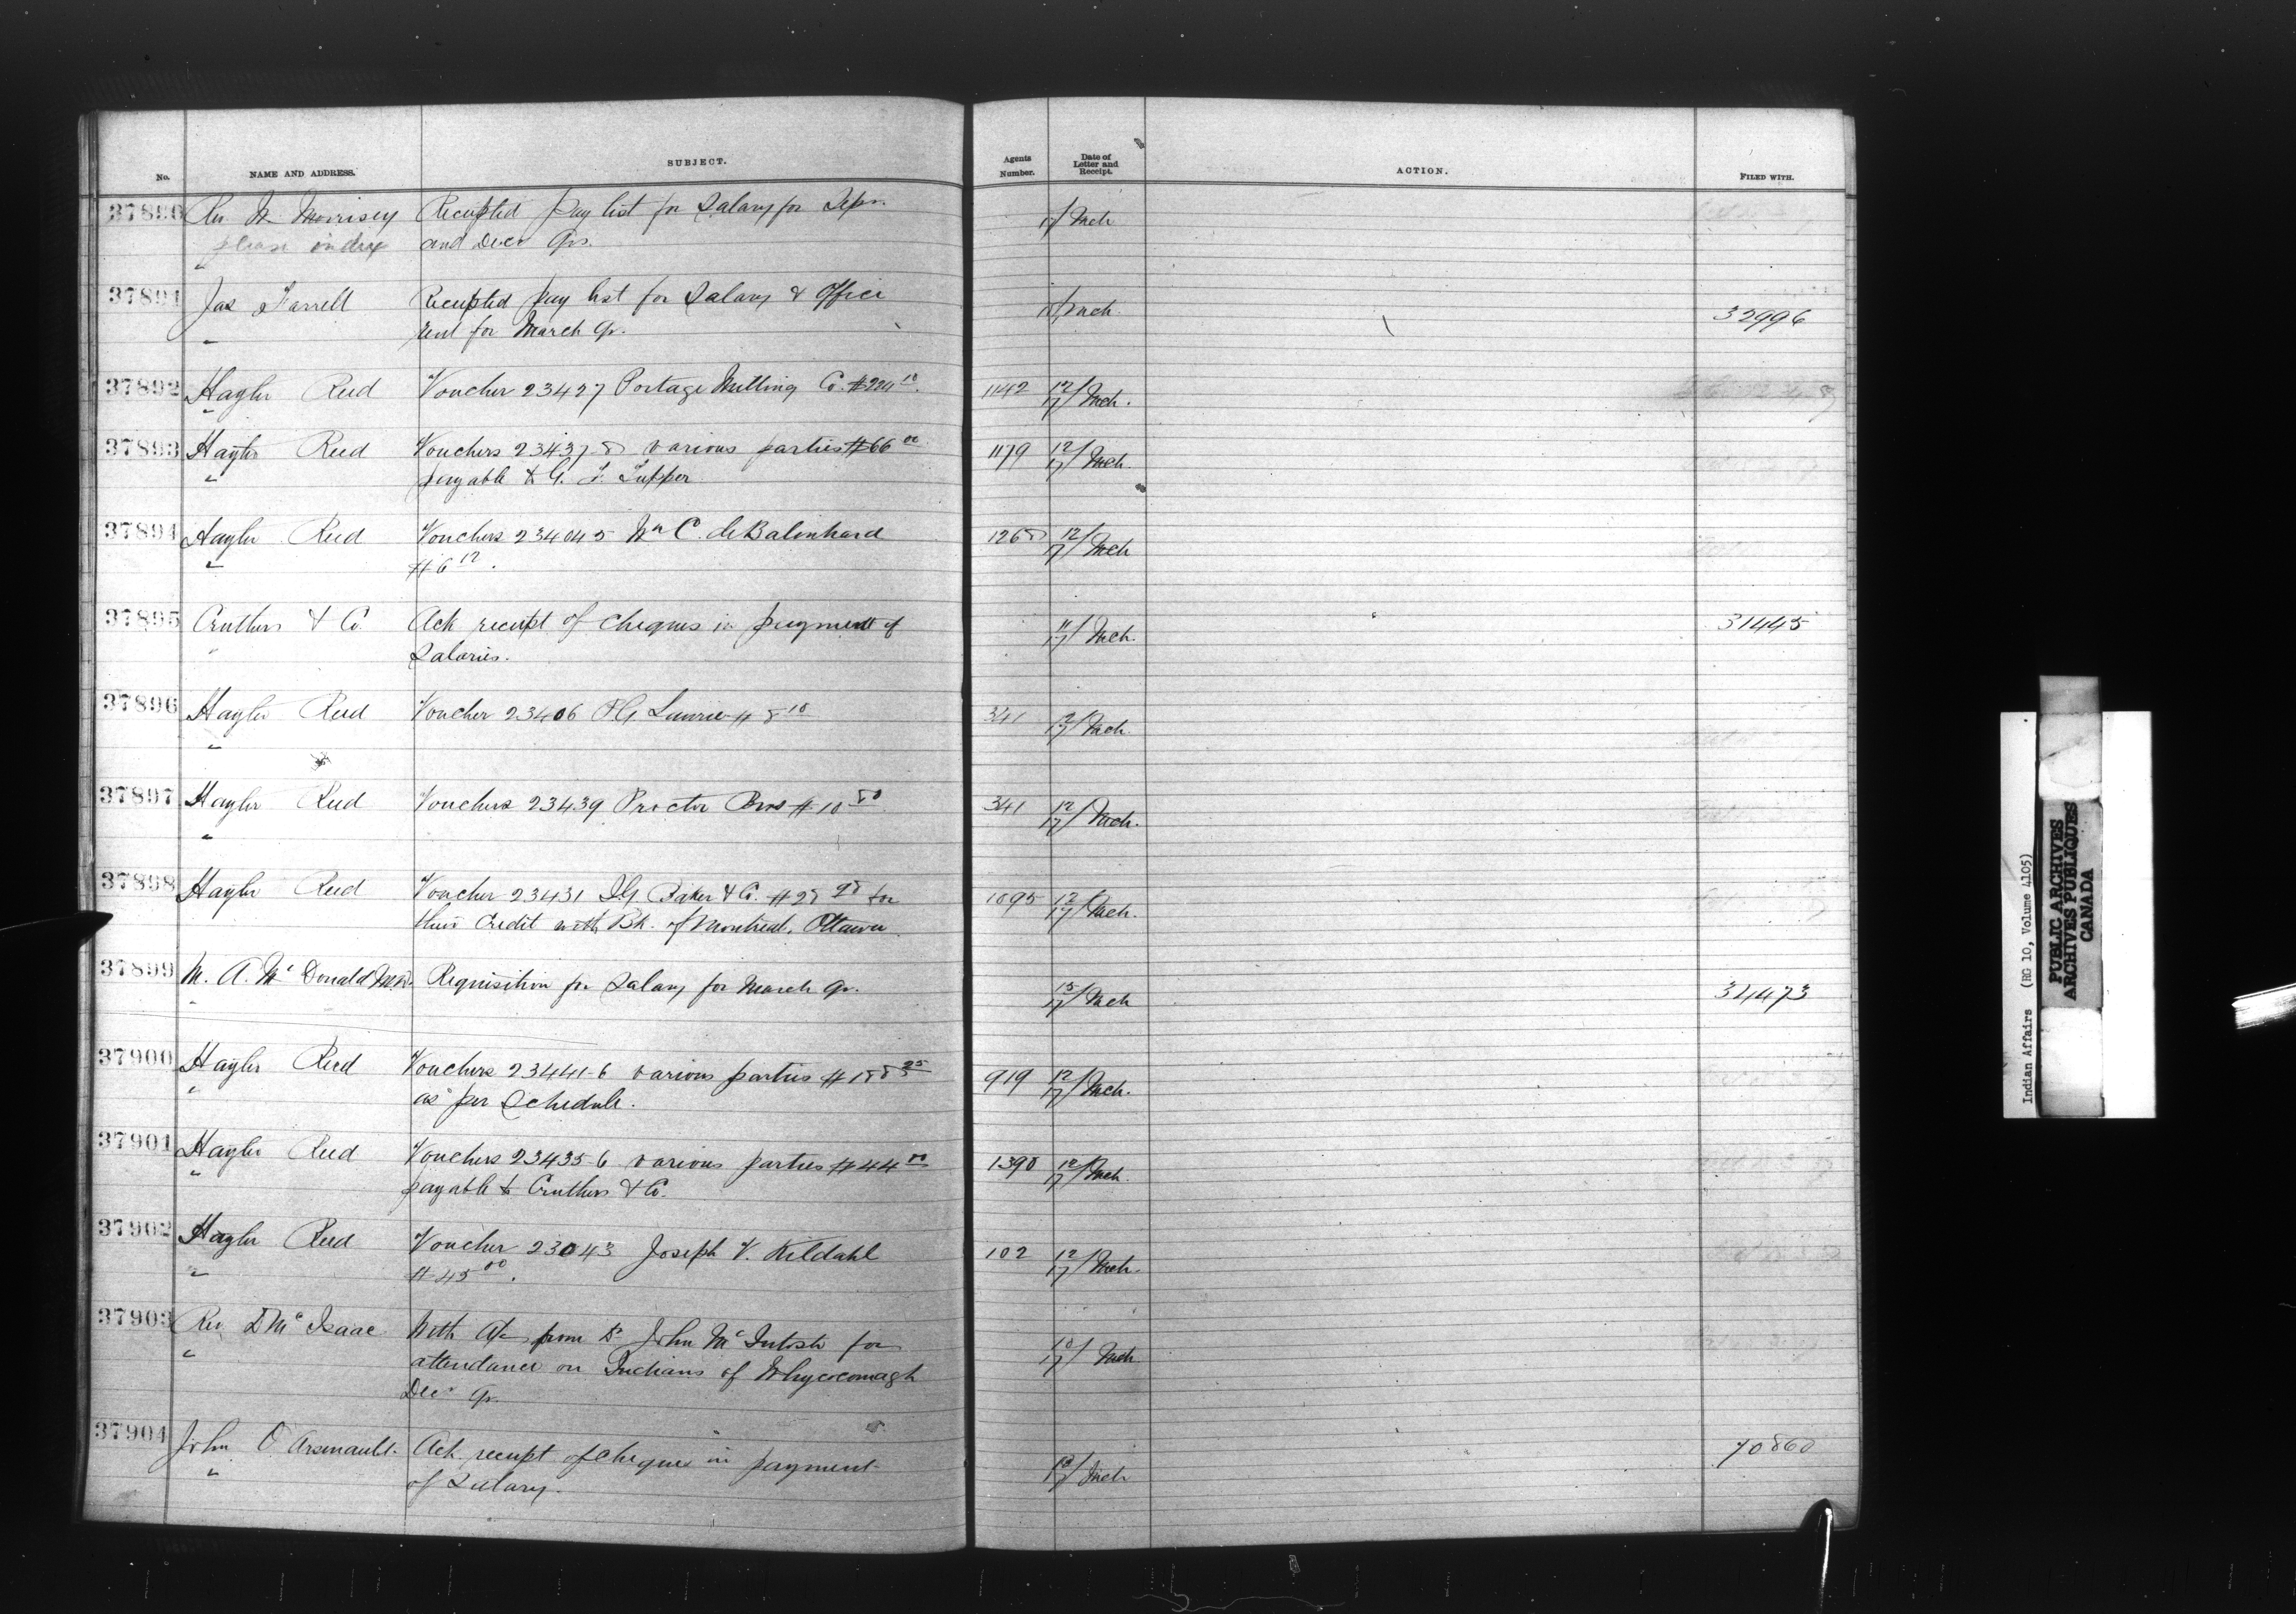 No. NAME AND ADDRESS. SUBJECT. Agents Number. Date of Letter and Receipt. ACTION. FILED WITH.
37890 Rev W Morrisey Receipted Pay list for Salary for Sepr. /17 Mch
please index and Decr Qrs.
37891 Jas Farrell Receipted pay list for Salary & Office /17 Mch. 32996
" rent for March Qr.
37892 Hayter Reed Voucher 23427 Portage Milling Co. $224 10 1142 12/17 Mch.
"
37893 Hayter Reed Vouchers 23437-8 various parties $66 00 1179 12/17 Mch.
" payable to G. F. Tupper
37894 Hayter Reed Vouchers 23404-5 Wm C. de Balinhard 1268 12/17 Mch
" $6 12.
37895 Cruthers & Co. Ack receipt of cheques in payment of 11/17 Mch. 31445
" Salaries.
37896 Hayter Reed Voucher 23406 PG Laurie $8 10 341 12/17 Mch.
"
37897 Hayter Reed Vouchers 23439 Proctor Bros $10 80 341 12/17 Mch.
"
37898 Hayter Reed Voucher 23431 I.G. Baker & Co. $28 98 for 1095 12/17 Mch.
their Credit with Bk. of Montreal, Ottawa
37899 M. A. McDonald M.D. Requisition for Salary for March Qr. 15/17 Mch 34473
"
37900 Hayter Reed Vouchers 23441-6 various parties $188 25 919 12/17 Mch.
" as per Schedule.
37901 Hayter Reed Vouchers 23435-6 various parties $44 00 1398 12/17 Mch.
" payable to Cruthers & Co.
37902 Hayter Reed Voucher 23043 Joseph V. Kildahl 102 12/17 Mch.
" $45 00.
37903 Rev D McIsaac With A/c from Dr John McIntosh for 10/17 Mch
" attendance on Indians of Whycocomagh
Decr Qr.
37904 John O Arsenault. Ack receipt of cheque in payment 13/17 Mch 70860
" of Salary.
Indian Affairs (RG 10, Volume 4105)
PUBLIC ARCHIVES
ARCHIVES PUBLIQUES
CANADA